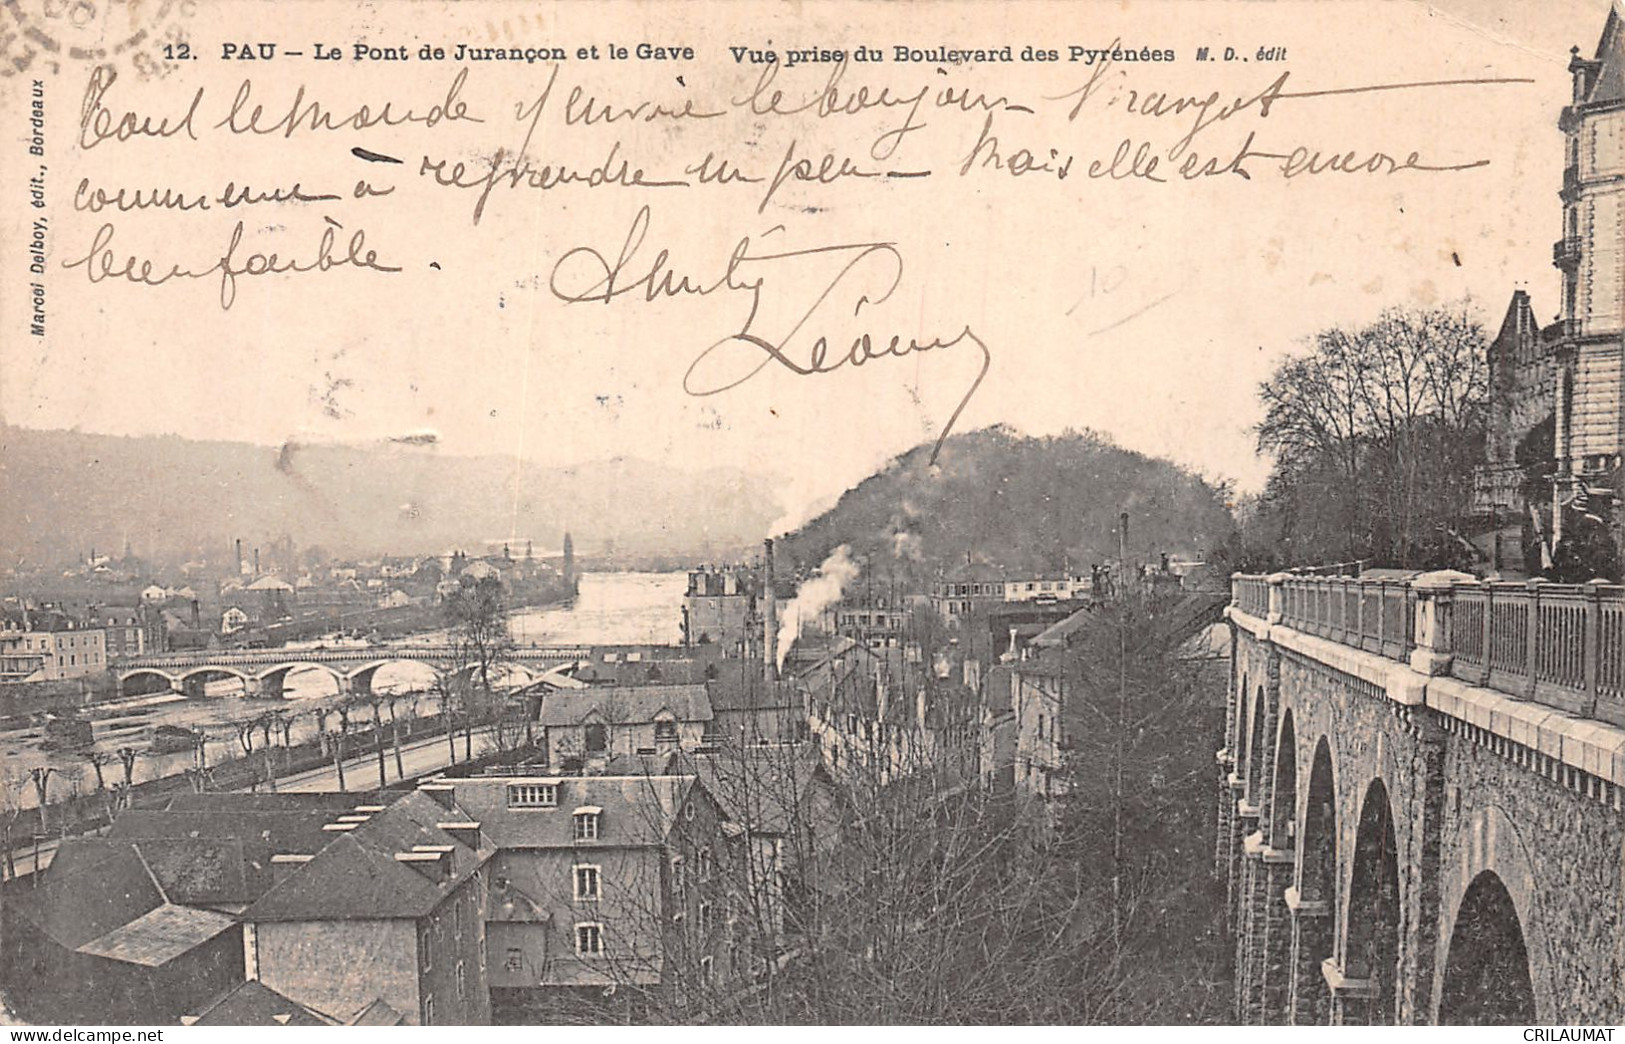 12. PAU – Le Pont de Jurançon et le Gave Vue prise du Boulevard des Pyrénées M. D., édit
Marcel Delboy, édit., Bordeaux
Tout le monde envoie le bonjour
commence à reprendre un peu – Mais elle est encore
bien faible.
Amitiés
Léonie
10
CRILAUMAT